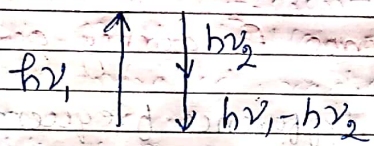 hν₂
hν₁
hν₁-hν₂